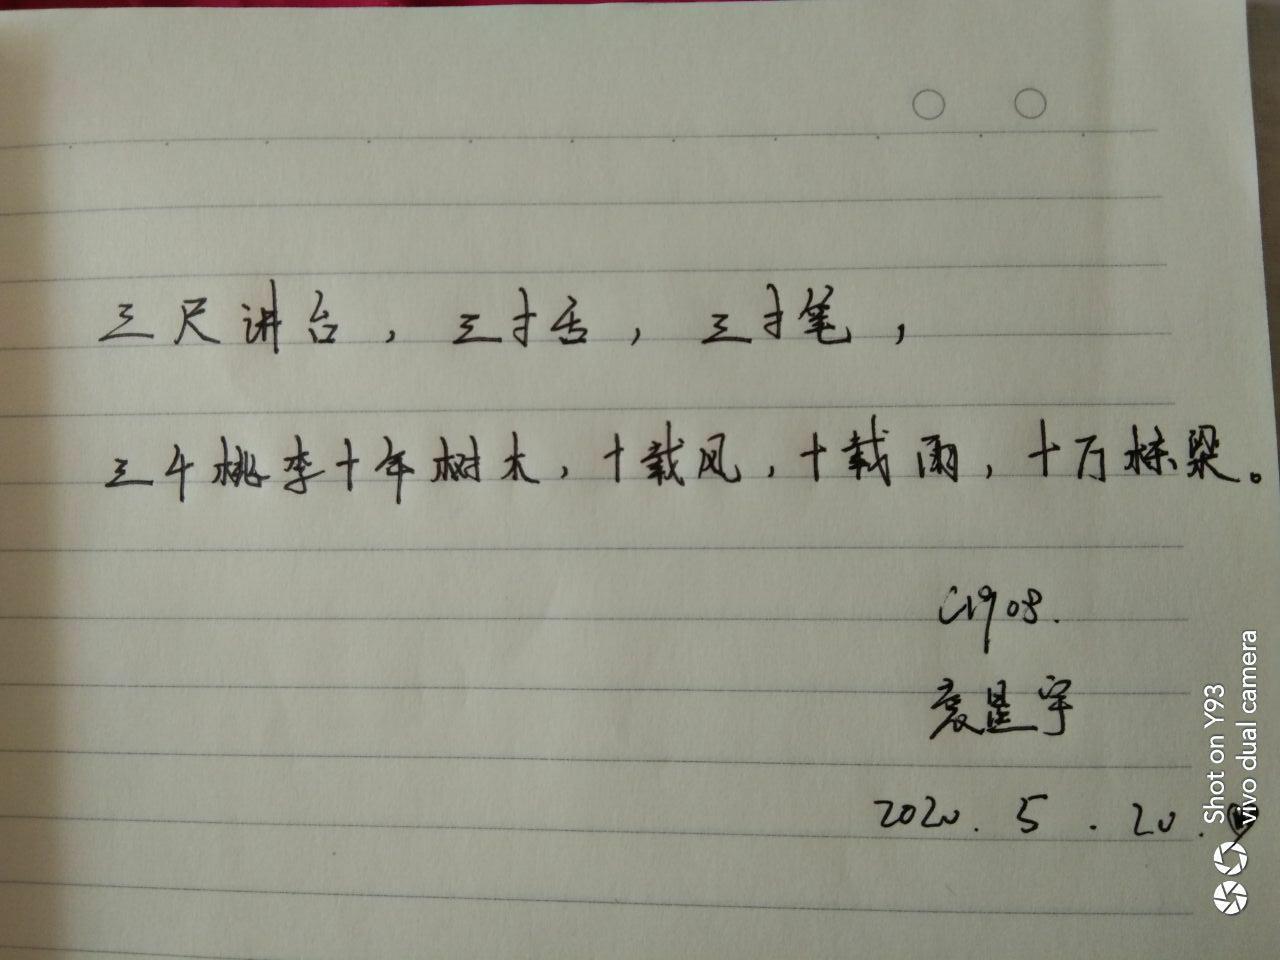 三尺讲台，三寸舌，三寸笔，
三千桃李十年树木，十载风，十载雨，十万栋梁。
C1908.
袁星宇
2020.5.20.
Shot on Y93
vivo dual camera